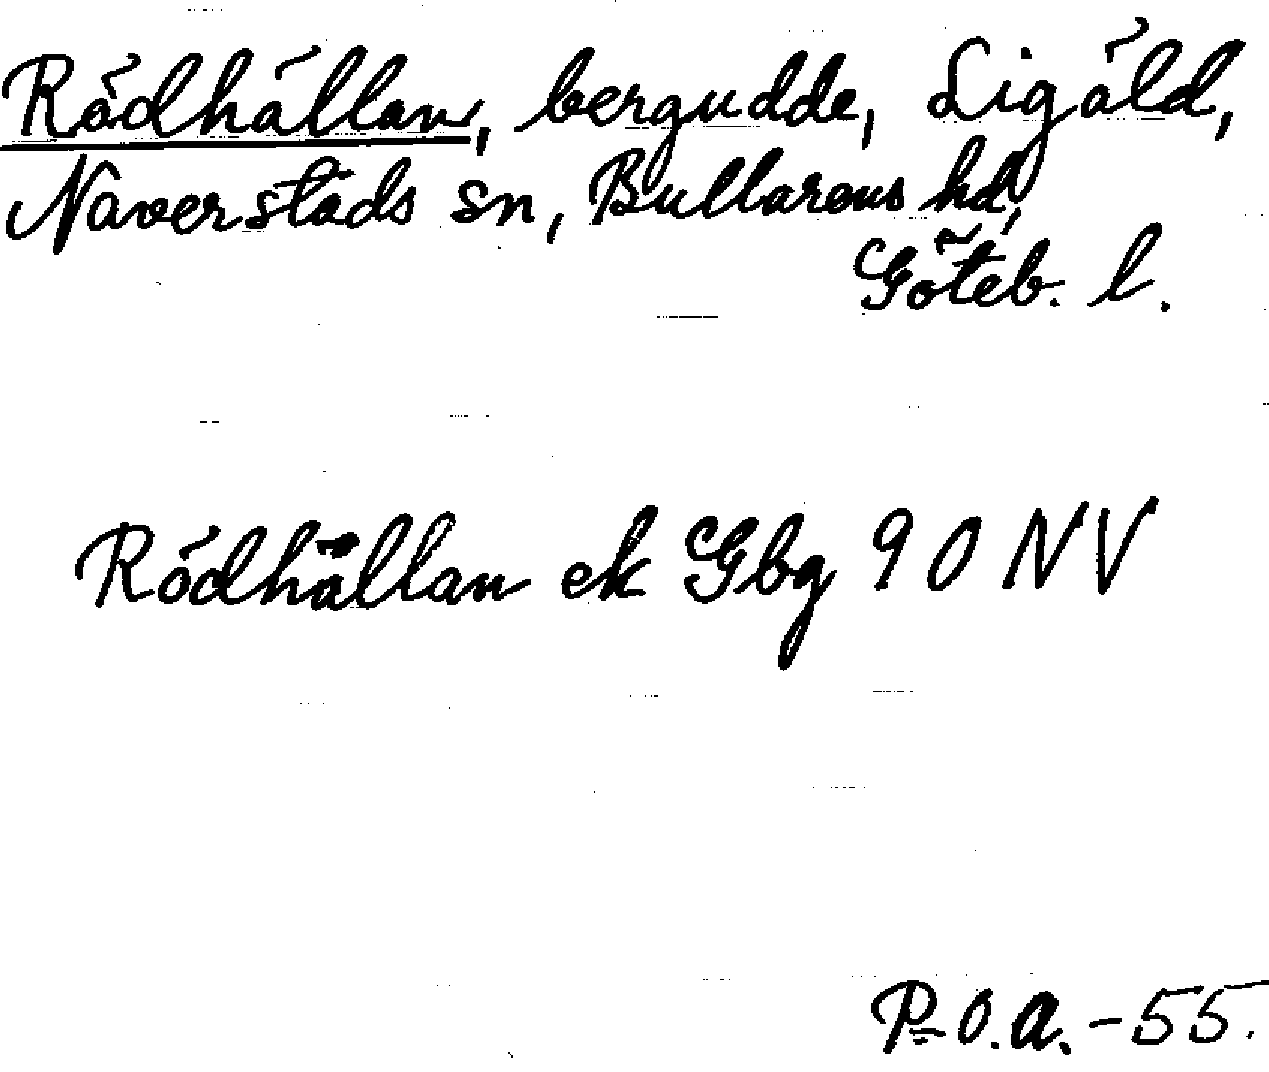 Rödhällan, bergudde, Ligäld,
Naverstads sn, Bullarens hd,
Göteb. l.
Rödhällan ek Gbg 90 NV
P.O.A. - 55.